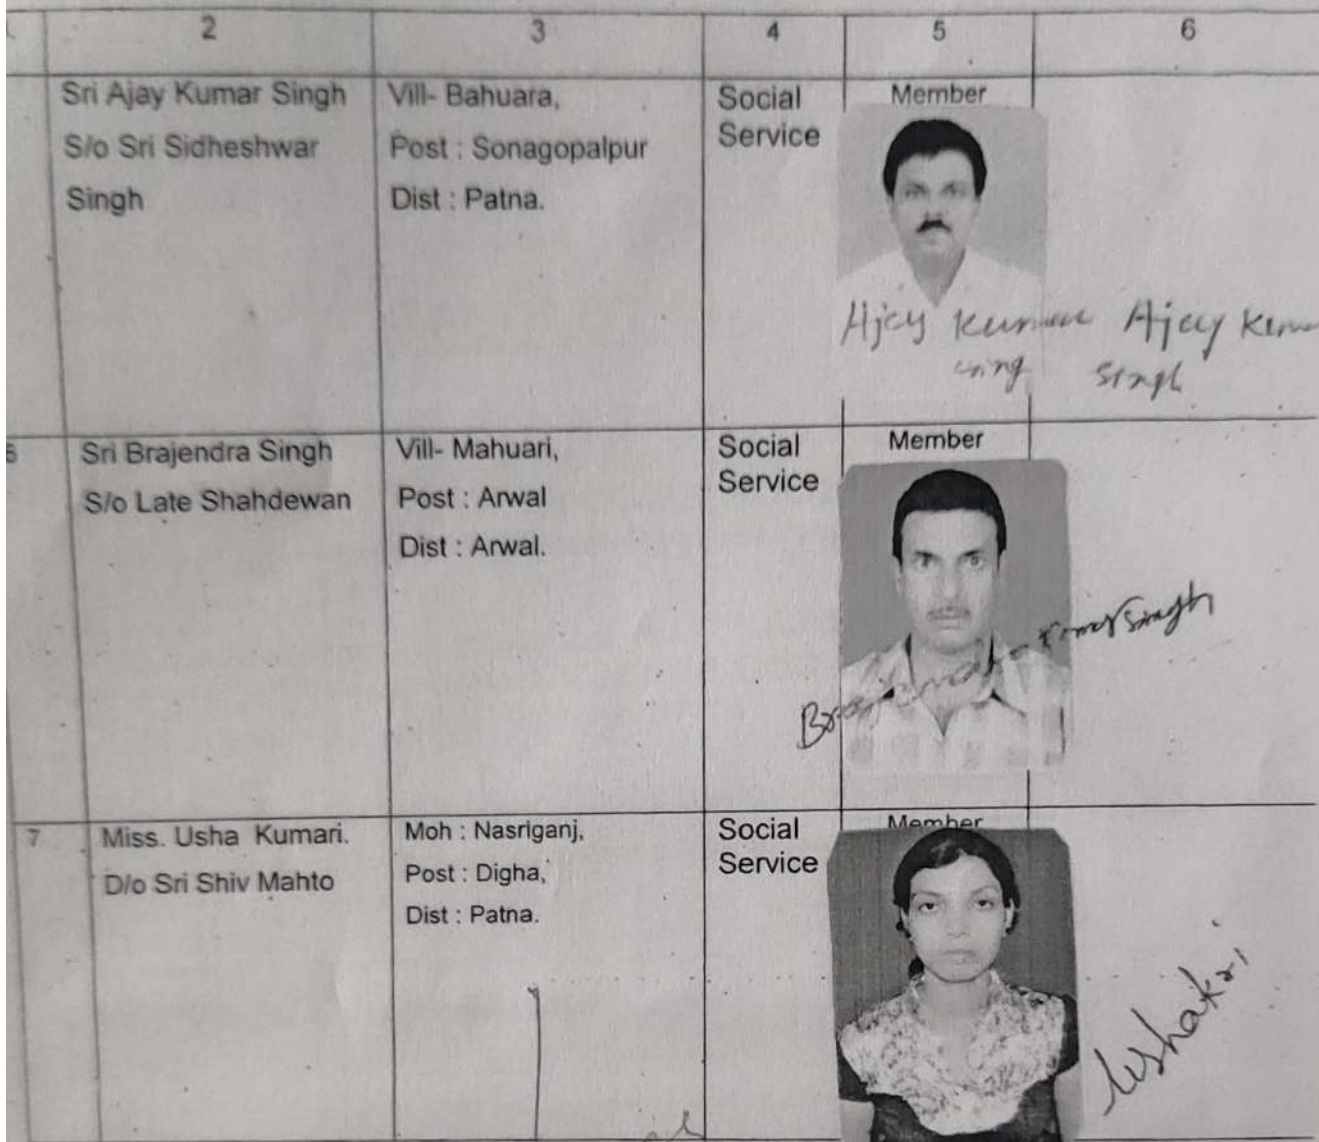 2 3 4 5 6
Sri Ajay Kumar Singh
S/o Sri Sidheshwar
Singh
Vill- Bahuara,
Post : Sonagopalpur
Dist : Patna.
Social
Service
Member
Ajay Kumar
Ajay Kuma
Singh
6
Sri Brajendra Singh
S/o Late Shahdewan
Vill- Mahuari,
Post : Arwal
Dist : Arwal.
Social
Service
Member
Brajendra Kumar Singh
7
Miss. Usha Kumari.
D/o Sri Shiv Mahto
Moh : Nasriganj,
Post : Digha,
Dist : Patna.
Social
Service
Member
Ushakri